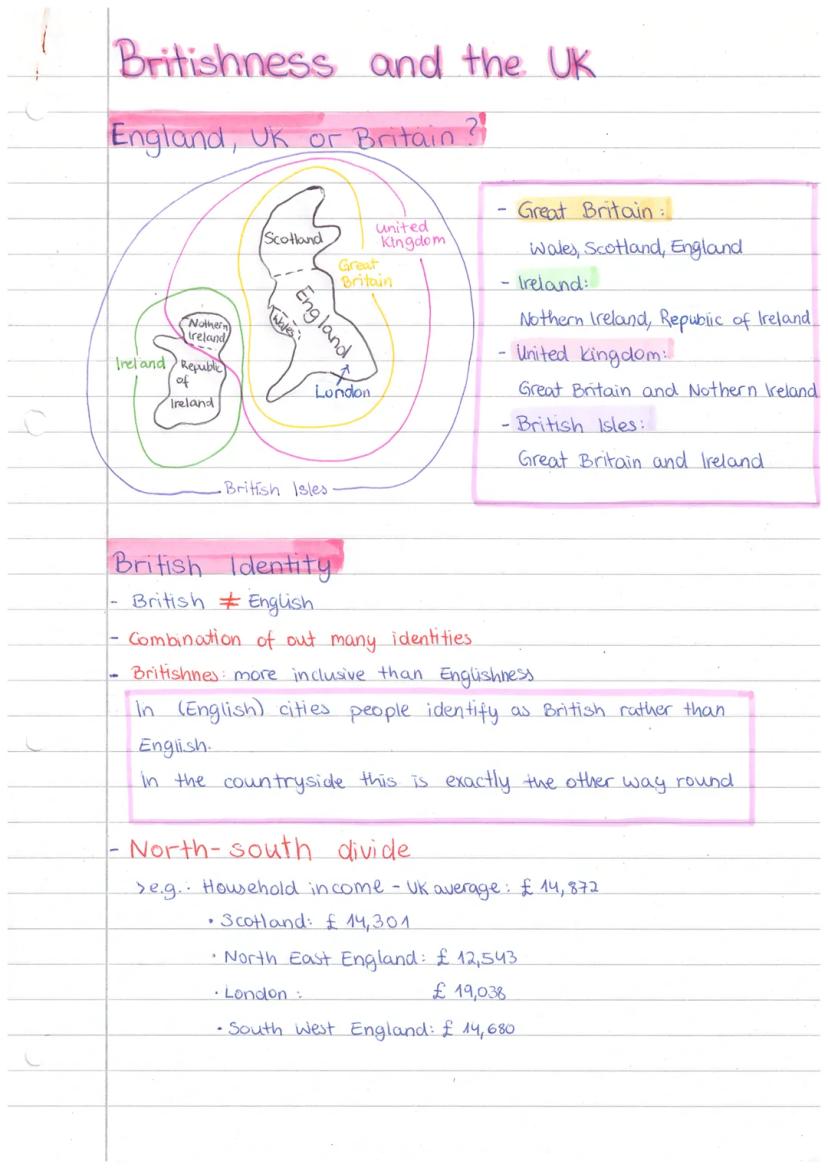 Britishness and the UK
England, UK or Britain?
Scotland
United
Kingdom
Great
Britain
England
Wales
Nothern
Ireland
Ireland
Republic
of
Ireland
London
British Isles
- Great Britain:
Wales, Scotland, England
- Ireland:
Nothern Ireland, Republic of Ireland
- United Kingdom:
Great Britain and Nothern Ireland
- British Isles:
Great Britain and Ireland
British Identity
- British ≠ English
- Combination of out many identities
- Britishnes: more inclusive than Englishness
In (English) cities people identify as British rather than
English.
In the countryside this is exactly the other way round
- North-south divide
> e.g.: Household income - UK average: £ 14,872
• Scotland: £ 14,301
• North East England: £ 12,543
• London: £ 19,038
• South West England: £ 14,680